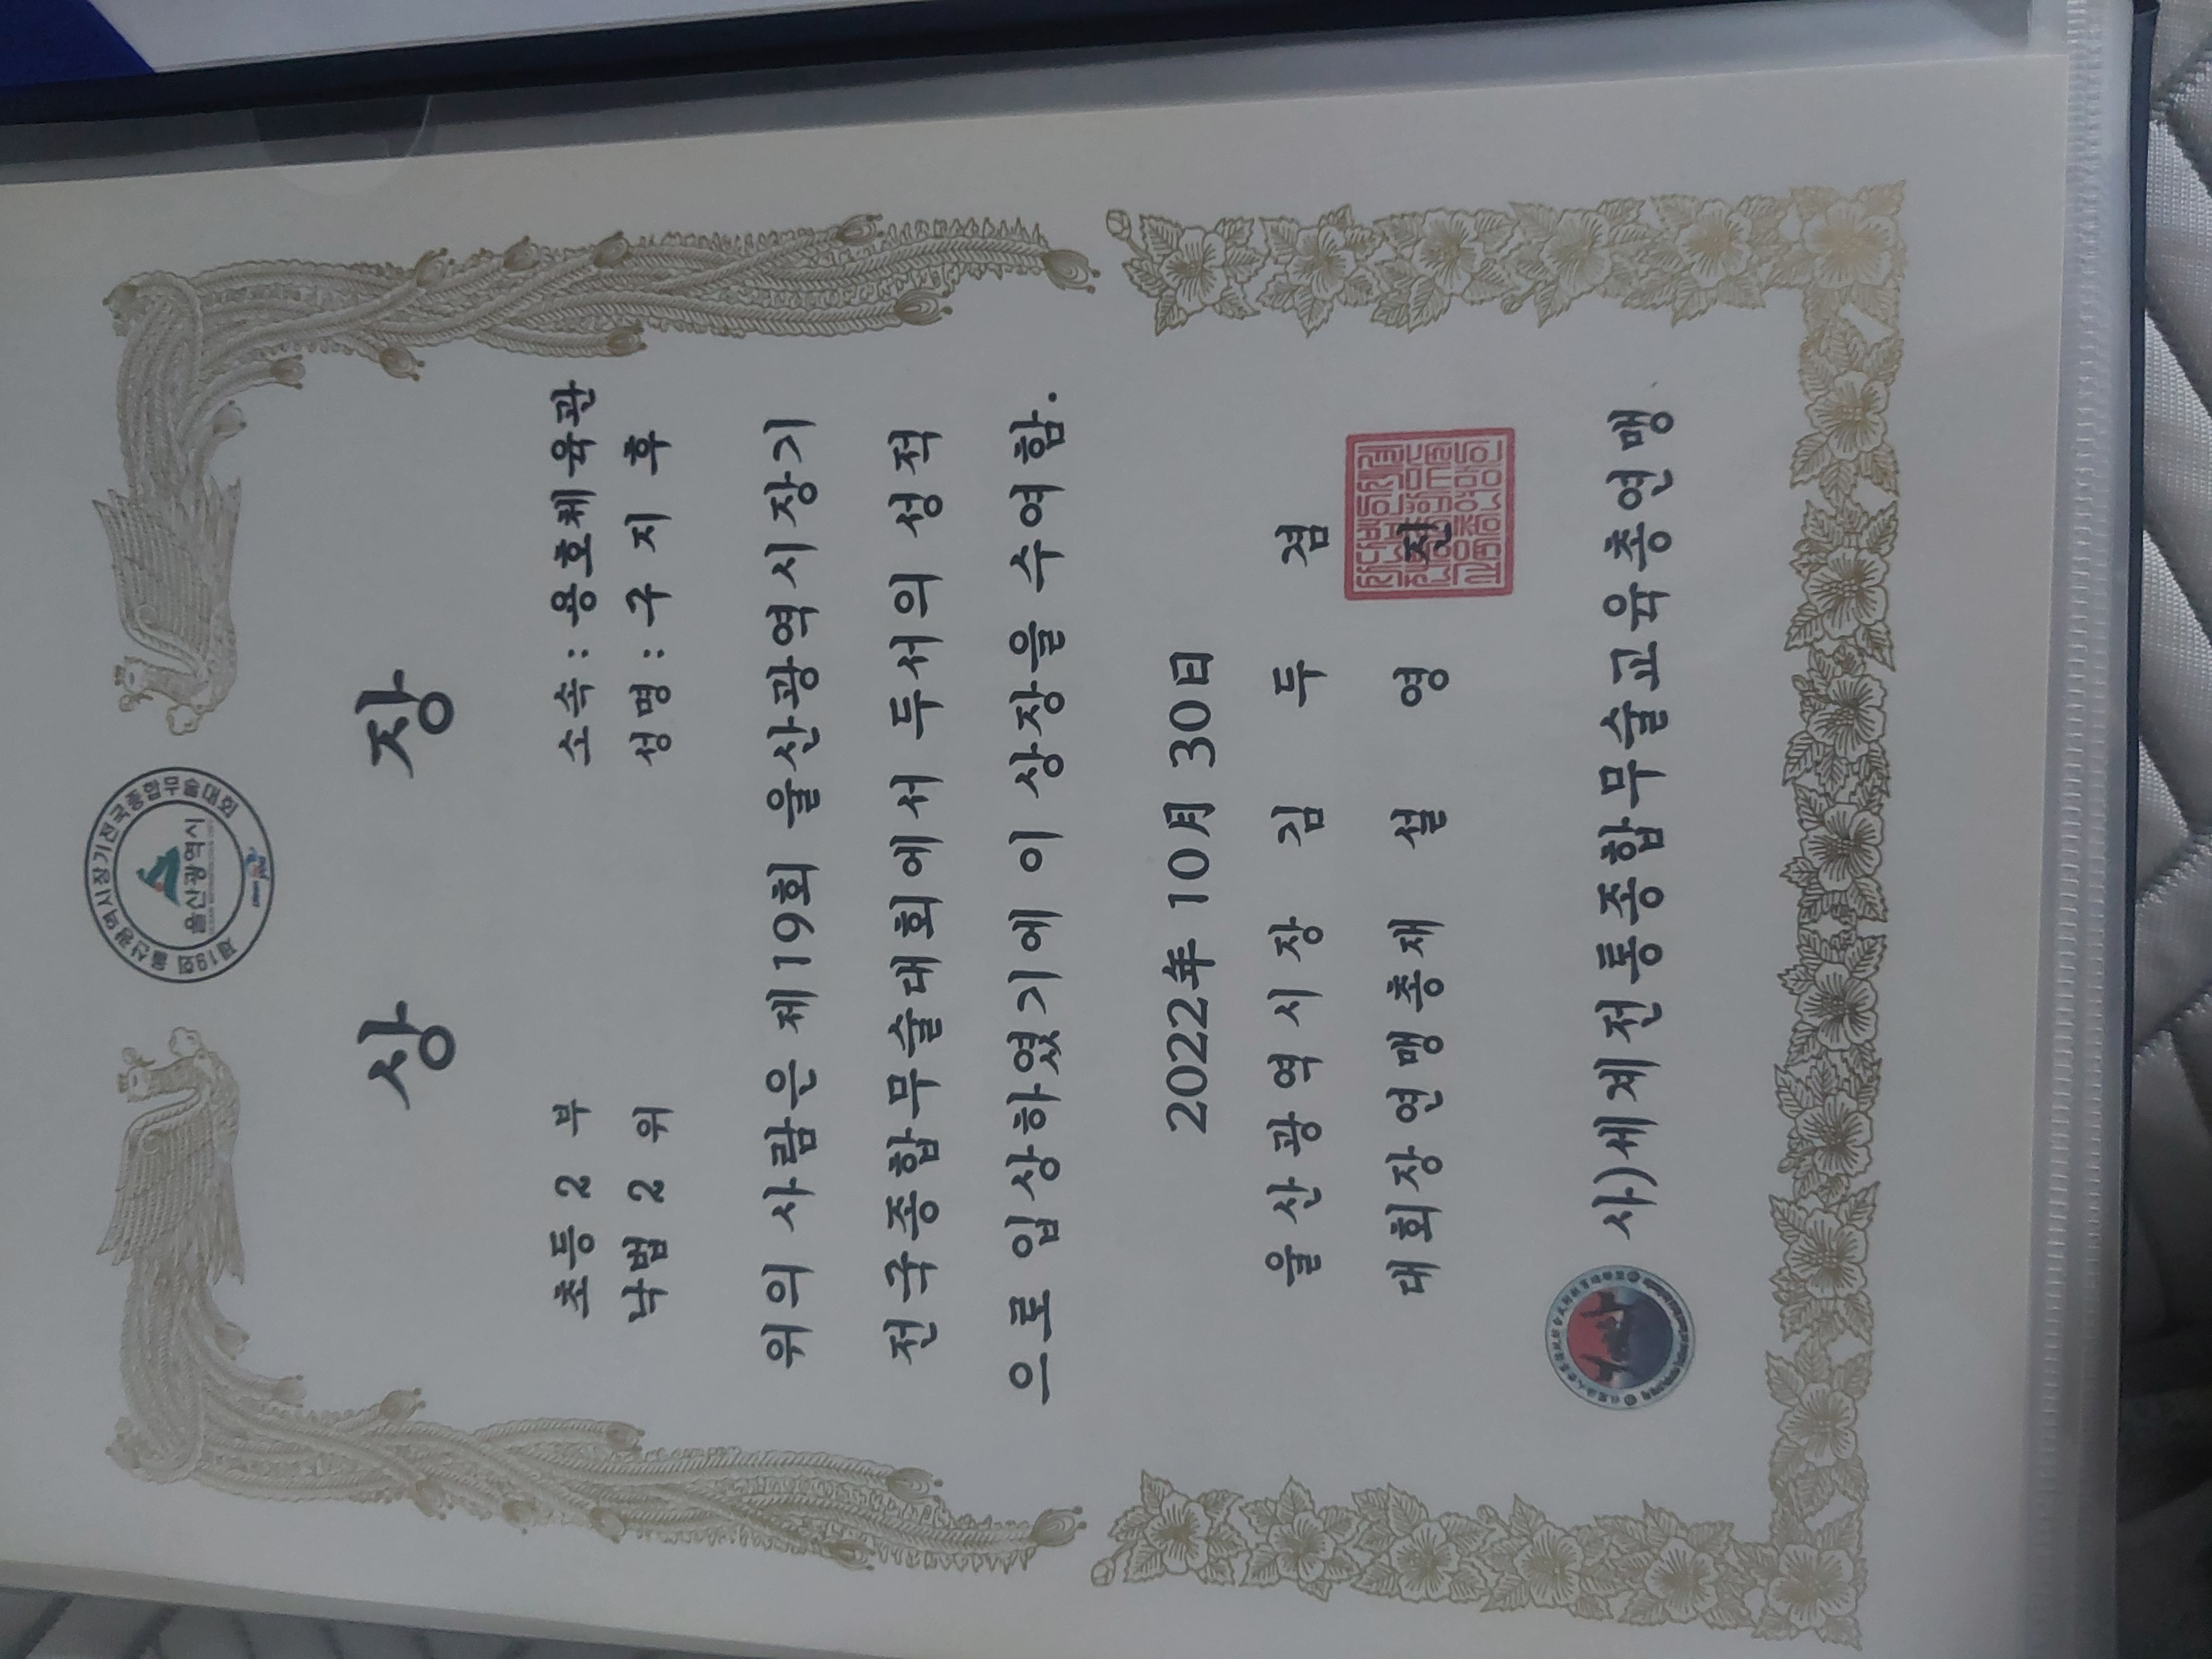 제19회 울산광역시장기전국종합무술대회
울산광역시
상 장
초등 2 부
낙법 2 위
소속 : 용호체육관
성명 : 구 지 후
위의 사람은 제19회 울산광역시장기
전국종합무술대회에서 두서의 성적
으로 입상하였기에 이 상장을 수여함.
2022年 10月 30日
울산광역시장 김 두 겸
대회장연맹총재 설 영 진
사)세계전통종합무술교육총연맹